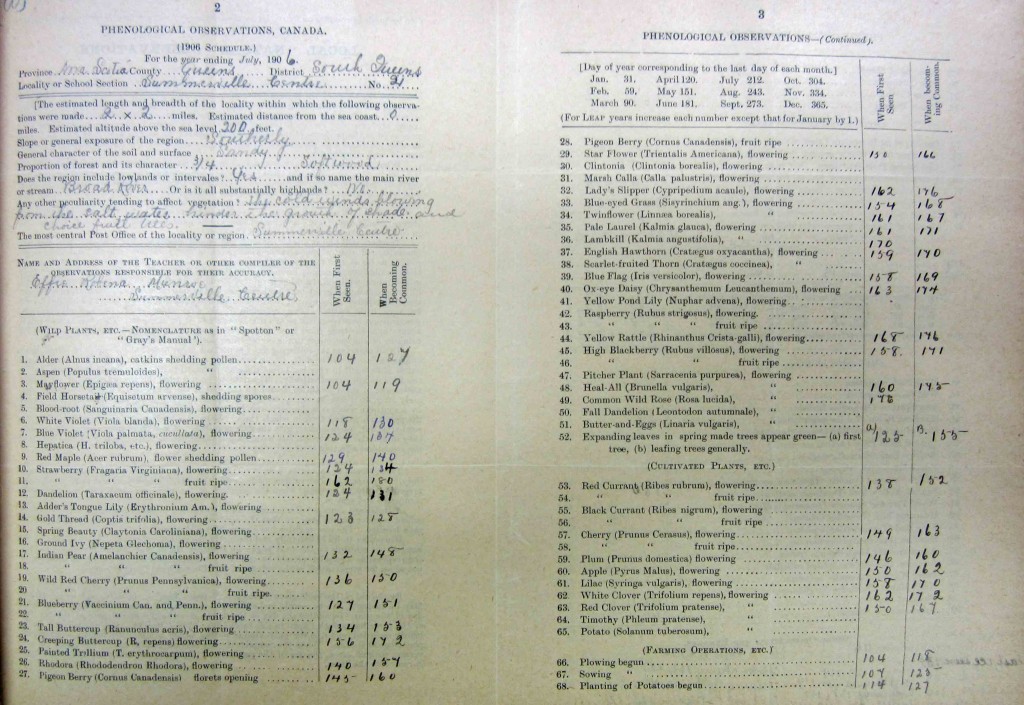 2
PHENOLOGICAL OBSERVATIONS, CANADA.
(1906 SCHEDULE.)
For the year ending July, 1906.
Province Nova Scotia County Queens District South Queens
Locality or School Section Summerville Centre No. 2
[The estimated length and breadth of the locality within which the following observa-
tions were made 2 x 2 miles. Estimated distance from the sea coast 0
miles. Estimated altitude above the sea level 200 feet.
Slope or general exposure of the region Southerly
General character of the soil and surface Sandy
Proportion of forest and its character 3/4 Softwood
Does the region include lowlands or intervales? Yes and if so name the main river
or stream Broad River Or is it all substantially highlands? No.
Any other peculiarity tending to affect vegetation? The cold winds blowing
from the salt water hinder the growth of shade and
choice fruit trees.
The most central Post Office of the locality or region. Summerville Centre
NAME AND ADDRESS OF THE TEACHER OR OTHER COMPILER OF THE
OBSERVATIONS RESPONSIBLE FOR THEIR ACCURACY.
Effie Munroe
Summerville Centre
When First Seen.
When Becoming Common.
(WILD PLANTS, ETC.—NOMENCLATURE as in "Spotton" or
"Gray's Manual").
1. Alder (Alnus incana), catkins shedding pollen 104 127
2. Aspen (Populus tremuloides), "
3. Mayflower (Epigæa repens), flowering 104 119
4. Field Horsetail (Equisetum arvense), shedding spores
5. Blood-root (Sanguinaria Canadensis), flowering
6. White Violet (Viola blanda), flowering 118 130
7. Blue Violet (Viola palmata, cucullata), flowering 124 137
8. Hepatica (H. triloba, etc.), flowering
9. Red Maple (Acer rubrum), flower shedding pollen 129 140
10. Strawberry (Fragaria Virginiana), flowering 124 134
11. " " fruit ripe 162 180
12. Dandelion (Taraxacum officinale), flowering 124 131
13. Adder's Tongue Lily (Erythronium Am.), flowering
14. Gold Thread (Coptis trifolia), flowering 123 128
15. Spring Beauty (Claytonia Caroliniana), flowering
16. Ground Ivy (Nepeta Glechoma), flowering
17. Indian Pear (Amelanchier Canadensis), flowering 132 148
18. " " fruit ripe
19. Wild Red Cherry (Prunus Pennsylvanica), flowering 136 150
20 " " fruit ripe
21. Blueberry (Vaccinium Can. and Penn.), flowering 127 151
22. " " fruit ripe
23. Tall Buttercup (Ranunculus acris), flowering 134 153
24. Creeping Buttercup (R. repens) flowering 156 172
25. Painted Trillium (T. erythrocarpum), flowering
26. Rhodora (Rhododendron Rhodora), flowering 140 157
27. Pigeon Berry (Cornus Canadensis) florets opening 145 160
3
PHENOLOGICAL OBSERVATIONS—(Continued).
[Day of year corresponding to the last day of each month.]
Jan. 31. April 120. July 212. Oct. 304.
Feb. 59. May 151. Aug. 243. Nov. 334.
March 90. June 181. Sept. 273. Dec. 365.
(For LEAF years increase each number except that for January by 1.)
When First Seen
When becoming Common.
28. Pigeon Berry (Cornus Canadensis), fruit ripe
29. Star Flower (Trientalis Americana), flowering 150 166
30. Clintonia (Clintonia borealis), flowering
31. Marsh Calla (Calla palustris), flowering
32. Lady's Slipper (Cypripedium acaule), flowering 162 176
33. Blue-eyed Grass (Sisyrinchium ang.), flowering 154 168
34. Twinflower (Linnæa borealis), " 161 167
35. Pale Laurel (Kalmia glauca), flowering 161 171
36. Lambkill (Kalmia augustifolia), " 170
37. English Hawthorn (Cratægus oxyacantha), flowering 159 170
38. Scarlet-fruited Thorn (Cratægus coccinea), "
39. Blue Flag (Iris versicolor), flowering 158 169
40. Ox-eye Daisy (Chrysanthemum Leucanthemum), flowering 163 174
41. Yellow Pond Lily (Nuphar advena), flowering
42. Raspberry (Rubus strigosus), flowering.
43. " " " fruit ripe
44. Yellow Rattle (Rhinanthus Crista-galli), flowering 168 176
45. High Blackberry (Rubus villosus), flowering 158. 171
46. " " " fruit ripe
47. Pitcher Plant (Sarracenia purpurea), flowering
48. Heal-All (Brunella vulgaris), " 160 175
49. Common Wild Rose (Rosa lucida), " 178
50. Fall Dandelion (Leontodon autumnale), "
51. Butter-and-Eggs (Linaria vulgaris), "
52. Expanding leaves in spring made trees appear green— (a) first
tree, (b) leafing trees generally. (a) 125 B. 155
(CULTIVATED PLANTS, ETC.)
53. Red Currant (Ribes rubrum), flowering 138 152
54. " " fruit ripe
55. Black Currant (Ribes nigrum), flowering
56. " " fruit ripe
57. Cherry (Prunus Cerasus), flowering 149 163
58. " " fruit ripe
59. Plum (Prunus domestica) flowering 146 160
60. Apple (Pyrus Malus), flowering 150 162
61. Lilac (Syringa vulgaris), flowering 158 170
62. White Clover (Trifolium repens), flowering 162 172
63. Red Clover (Trifolium pratense), " 150 167
64. Timothy (Phleum pratense), "
65. Potato (Solanum tuberosum), "
(FARMING OPERATIONS, ETC.)
66. Plowing begun 104 118
67. Sowing " 107 125
68. Planting of Potatoes begun 114 127